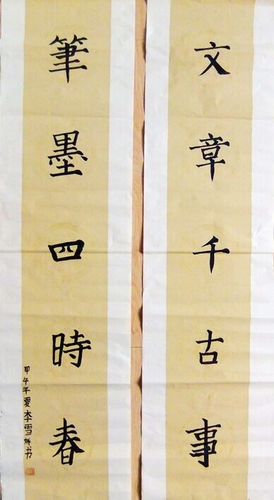 文章千古事
筆墨四時春
甲午年夏李雪梅书